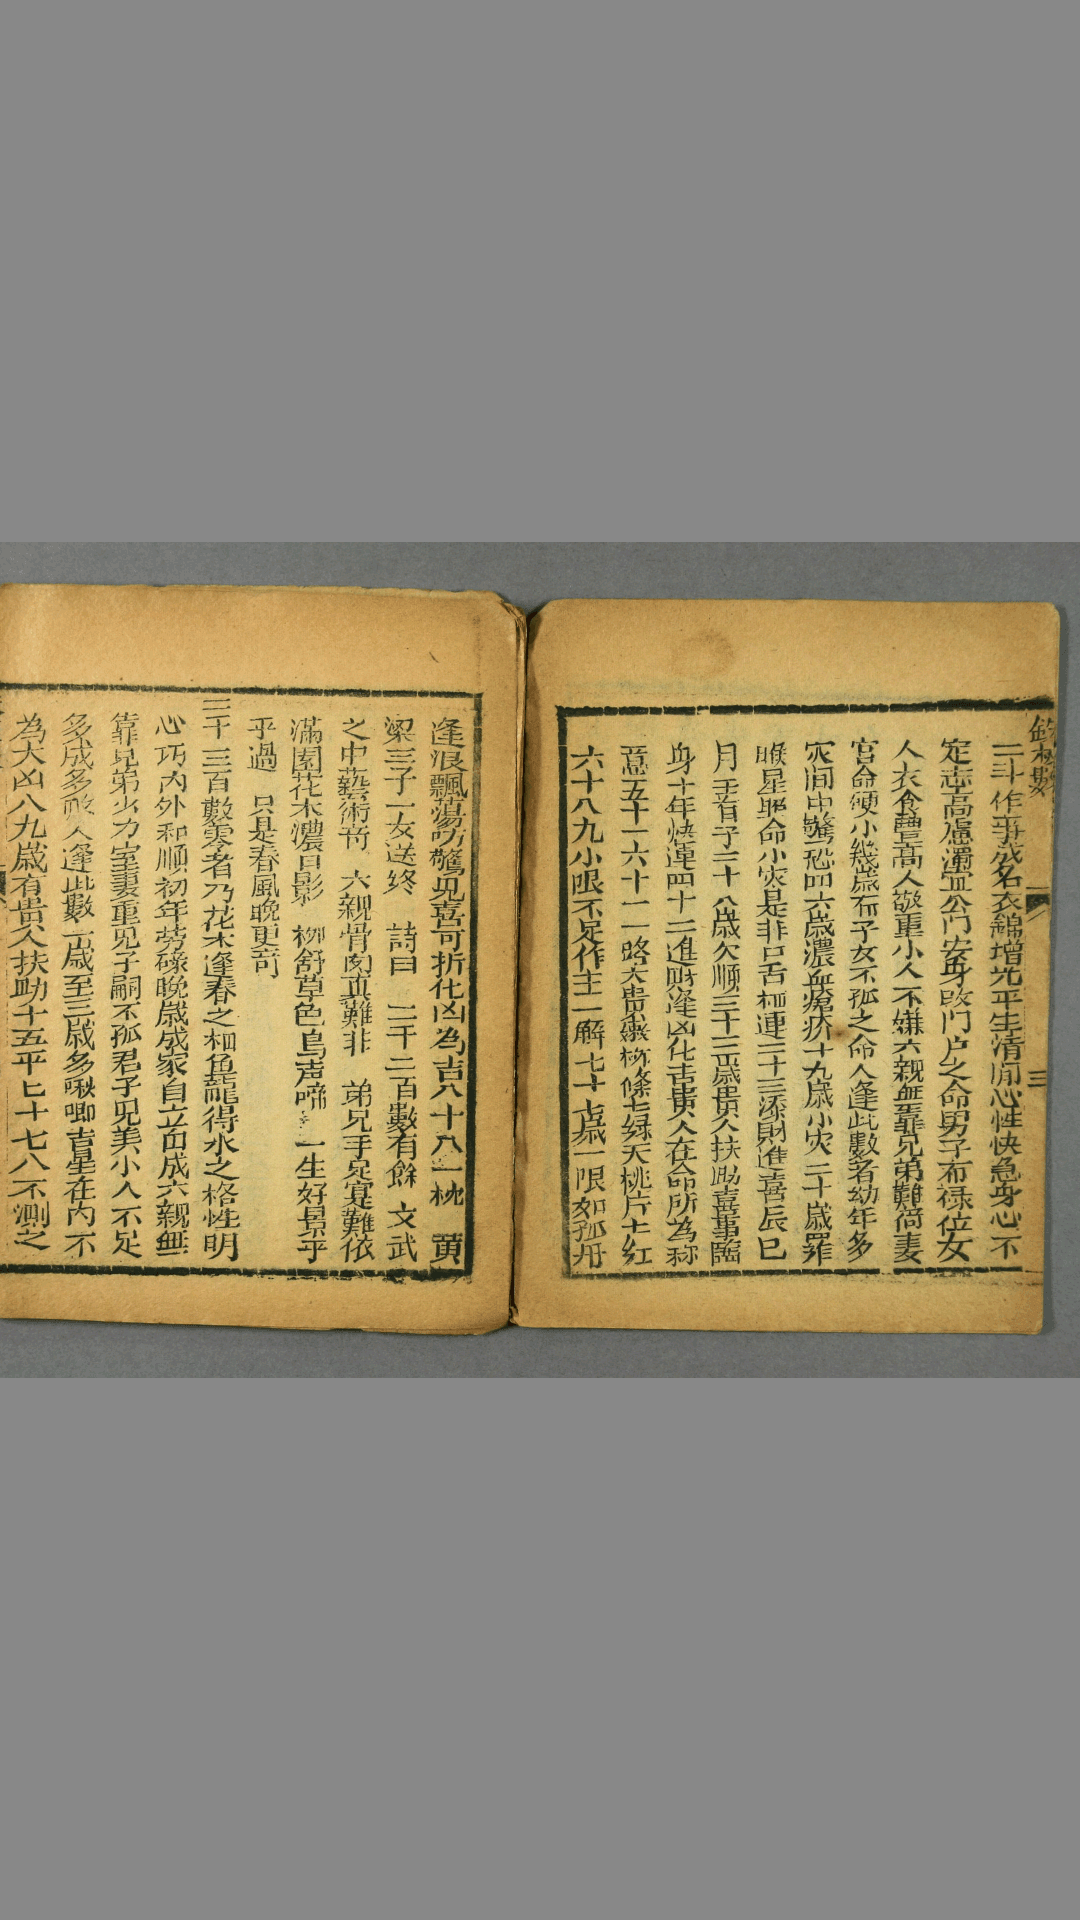 二斗作事成名衣錦增光平生清閒心性快急身心不
定志高慮濁宜公門安身改門戶之命男子有祿位女
人衣食豐高人敬重小人不嫌六親無靠兄弟難倚妻
宮命硬小幾歲有子女不孤之命人逢此數者幼年多
灾间中驚恐四六歲濃血瘡疥十九歲小灾二十歲羅
睺星照命小灾是非口舌相連二十三添財進喜辰巳
月生貴子二十八歲欠順三十三歲貴人扶助喜事臨
身十年快運四十二進財逢凶化吉貴人在命所為称
意五十一六十一一路大貴 條七緑天桃片七紅
六十八九小限不足作主一解七十七歲一限如孤舟
逢浪飄蕩 驚見喜可折化凶為吉八十八一枕 黃
梁三子一女送终 詩曰 二千二百數有餘 文武
之中藝術奇 六親骨肉真難非 弟兄手足寔難依
滿園花木濃日影 柳舒草色鳥声啼 一生好景乎
乎過 只是春風晚更奇
三千三百數零者乃花木逢春之相魚龍得水之格性明
心巧内外和順初年劳碌晚歲成家自立而成六親無
靠兄弟少力室妻重見子嗣不孤君子見美小人不足
多成多敗人逢此數一歲至三歲多啾唧吉星在内不
為大凶八九歲有貴人扶助十五平七十七八不測之